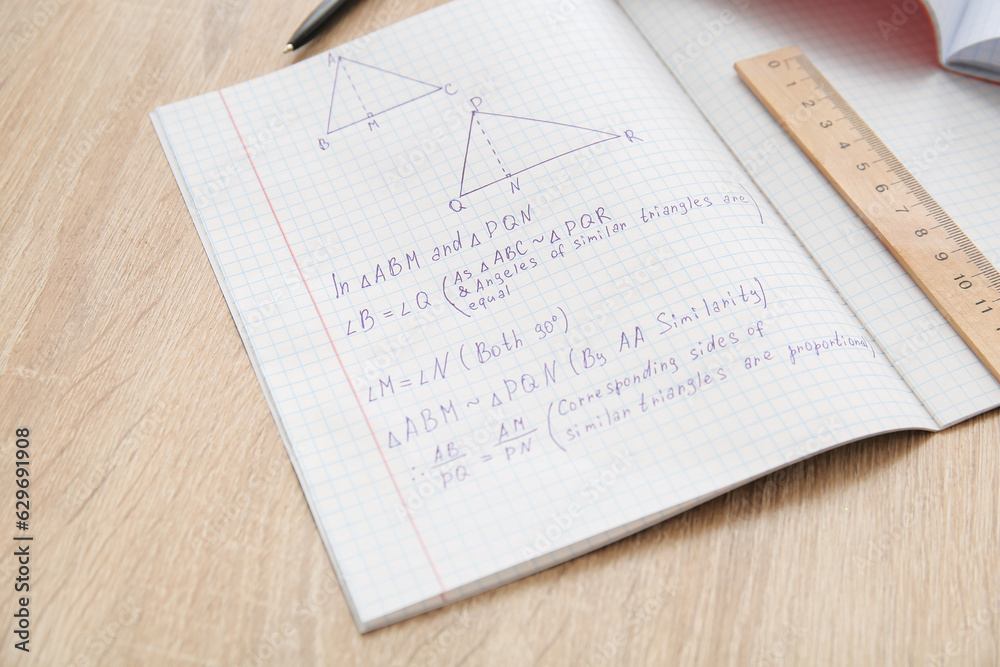 A
C
B
M
P
R
Q
N
In △ABM and △PQN
∠B = ∠Q (As △ABC ~ △PQR
& Angeles of similar triangles are
equal)
∠M = ∠N (Both 90°)
△ABM ~ △PQN (By AA Similarity)
∴ AB/PQ = AM/PN (Corresponding sides of
similar triangles are proportional)
0 1 2 3 4 5 6 7 8 9 10 11
Adobe Stock | #629691908